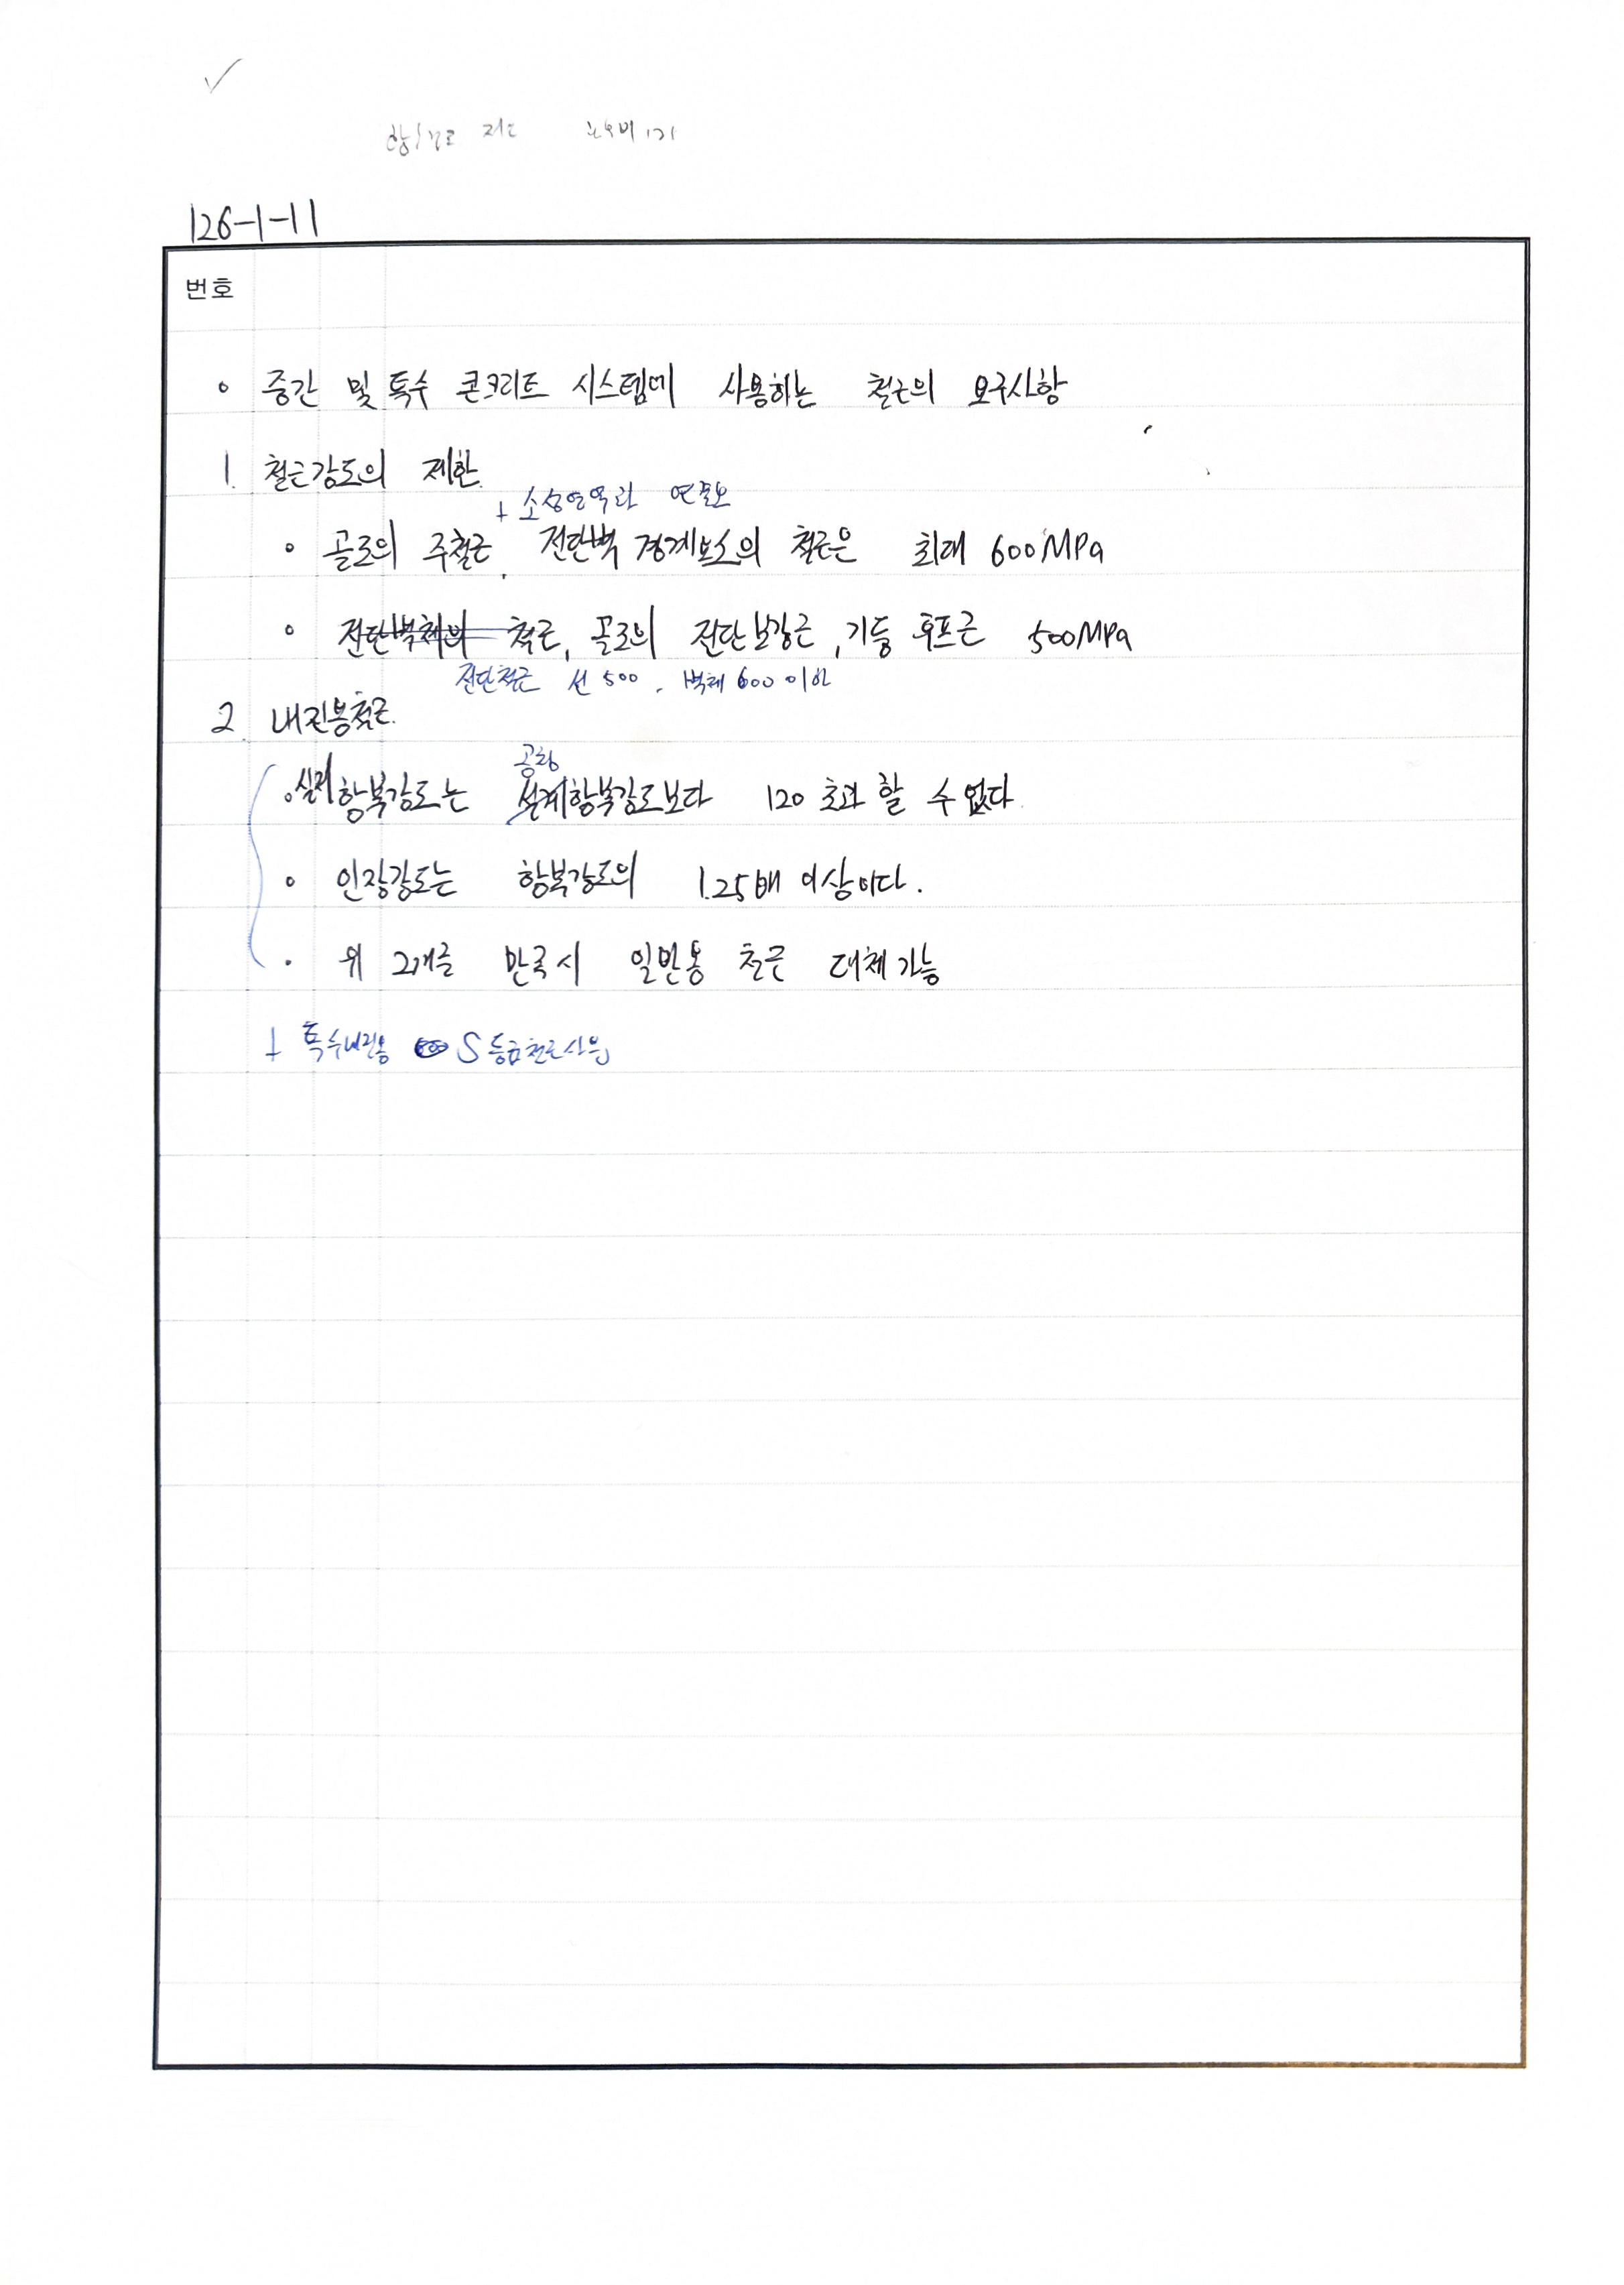 126-1-11
번호
○ 중간 및 특수 콘크리트 시스템에 사용하는 철근의 요구사항
1. 철근강도의 제한.
+ 소성영역과 연결보
○ 골조의 주철근, 전단벽 경계요소의 철근은 최대 600MPa
○ 전단벽체의 철근, 골조의 전단보강근, 기둥 후프근 500MPa
전단철근 선 500, 벽체 600 이하
2. 내진용철근.
공칭
○ 실제 항복강도는 설계항복강도보다 120 초과 할 수 없다.
○ 인장강도는 항복강도의 1.25배 이상이다.
· 위 2개를 만족시 일반용 철근 대체가능
+ 특수내진용 S등급철근사용